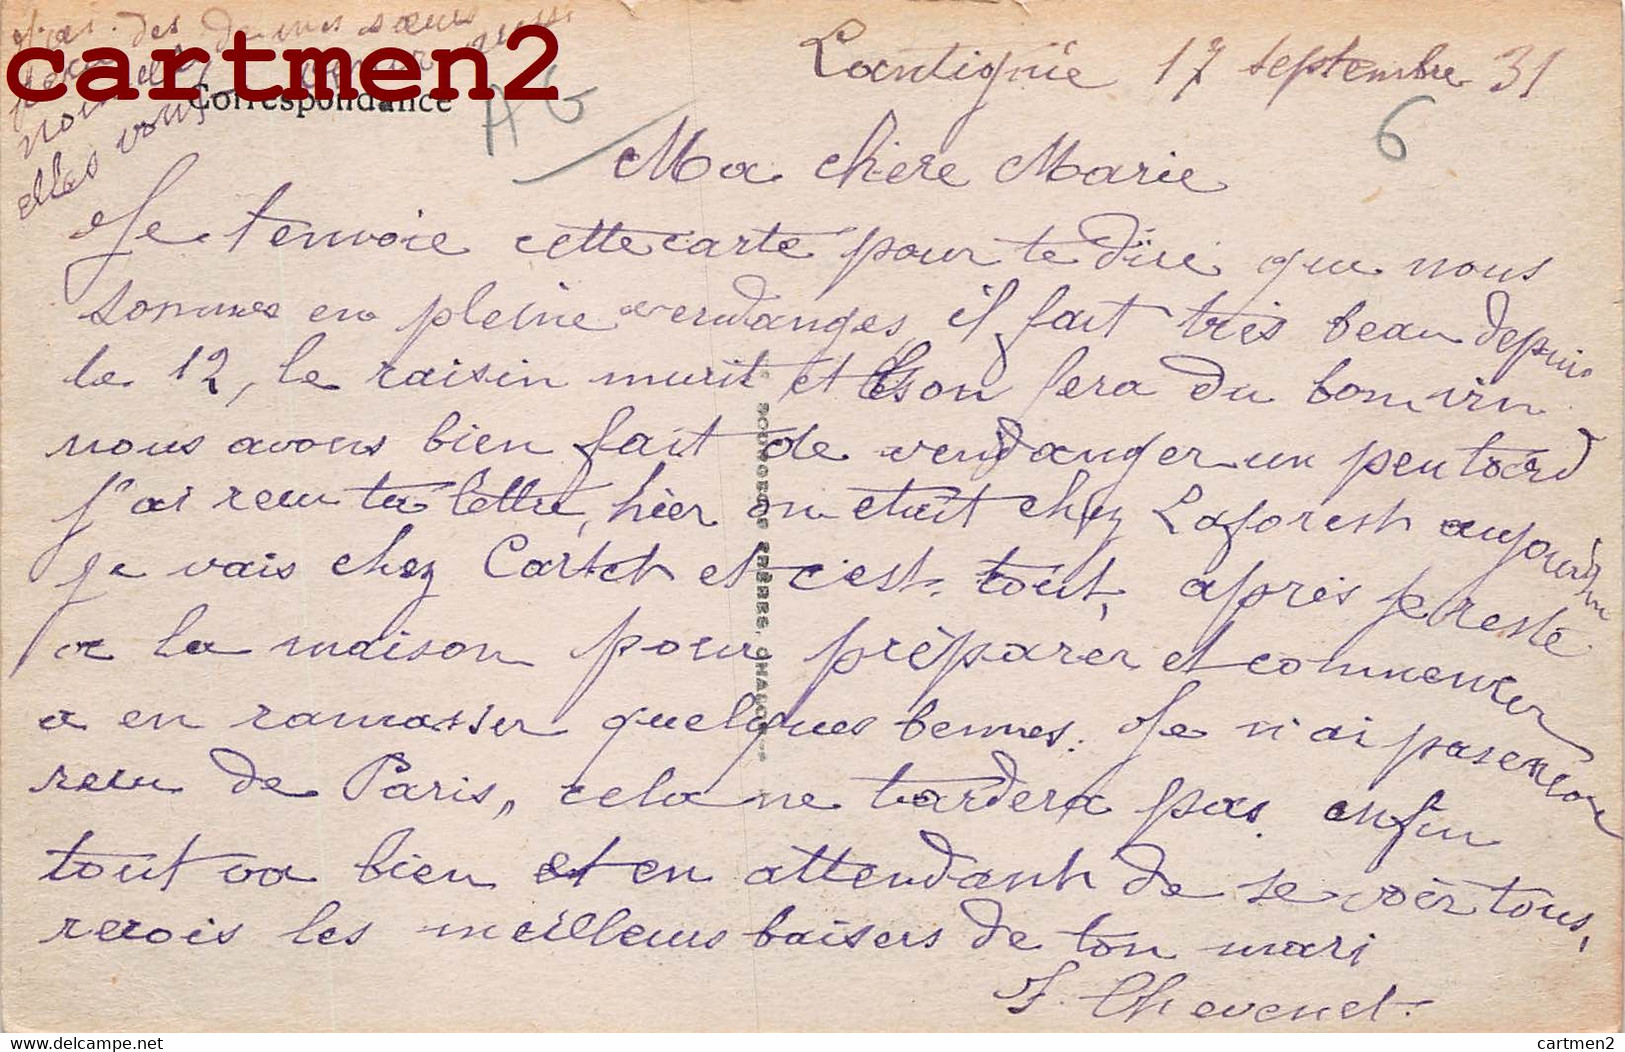 cartmen2
Correspondance
AG
6
Lantignié 17 septembre 31
Ma chère Marie
Je t'envoie cette carte pour te dire que nous
sommes en pleine vendanges, il fait très beau depuis
le 12, le raisin murit et son fera du bon vin
nous avons bien fait de vendanger un peu tard
j'ai recu ta lettre, hier on etait chez Laforest aujourd'hu
je vais chez Cartet et c'est tout, après je reste
a la maison pour préparer et commencer
a en ramasser quelques bennes. Je n'ai pas encore
recu de Paris, cela ne tardera pas. enfin
tout va bien et en attendant de se voir tous,
recois les meilleurs baisers de ton mari
J. Chevenet.
j'ai des de mes sœurs
nouvelles
elles vont
BOURGEOIS FRÈRES, CHALON
cartmen2
cartmen2